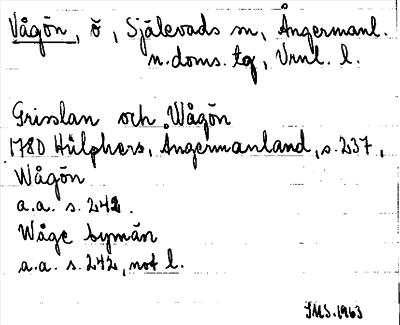 Vågön, ö, Själevads sn, Ångermanl.
n. doms. tg, Vrnl. l.
Grisslan och Wågön
1780 Hülphers, Ångermanland, s. 237,
Wågön
a.a. s. 242.
Wåge bymän
a.a. s. 242, not l.
JMS. 1963